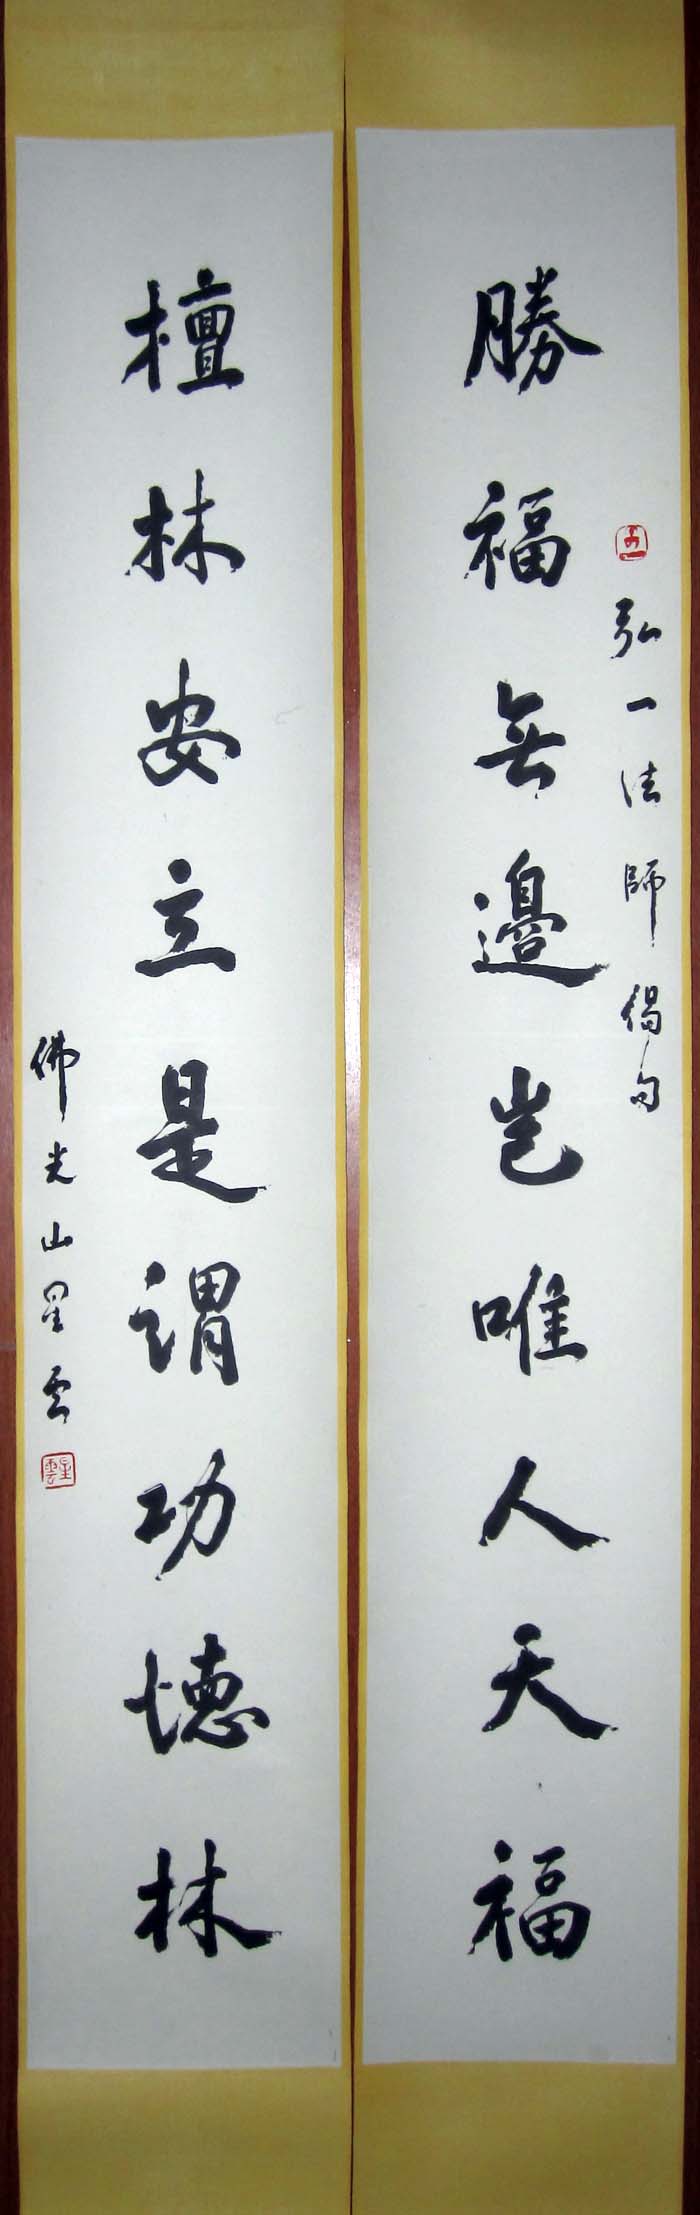 弘一法師偈句
勝福無邊豈唯人天福
檀林安立是謂功德林
佛光山星雲
星雲